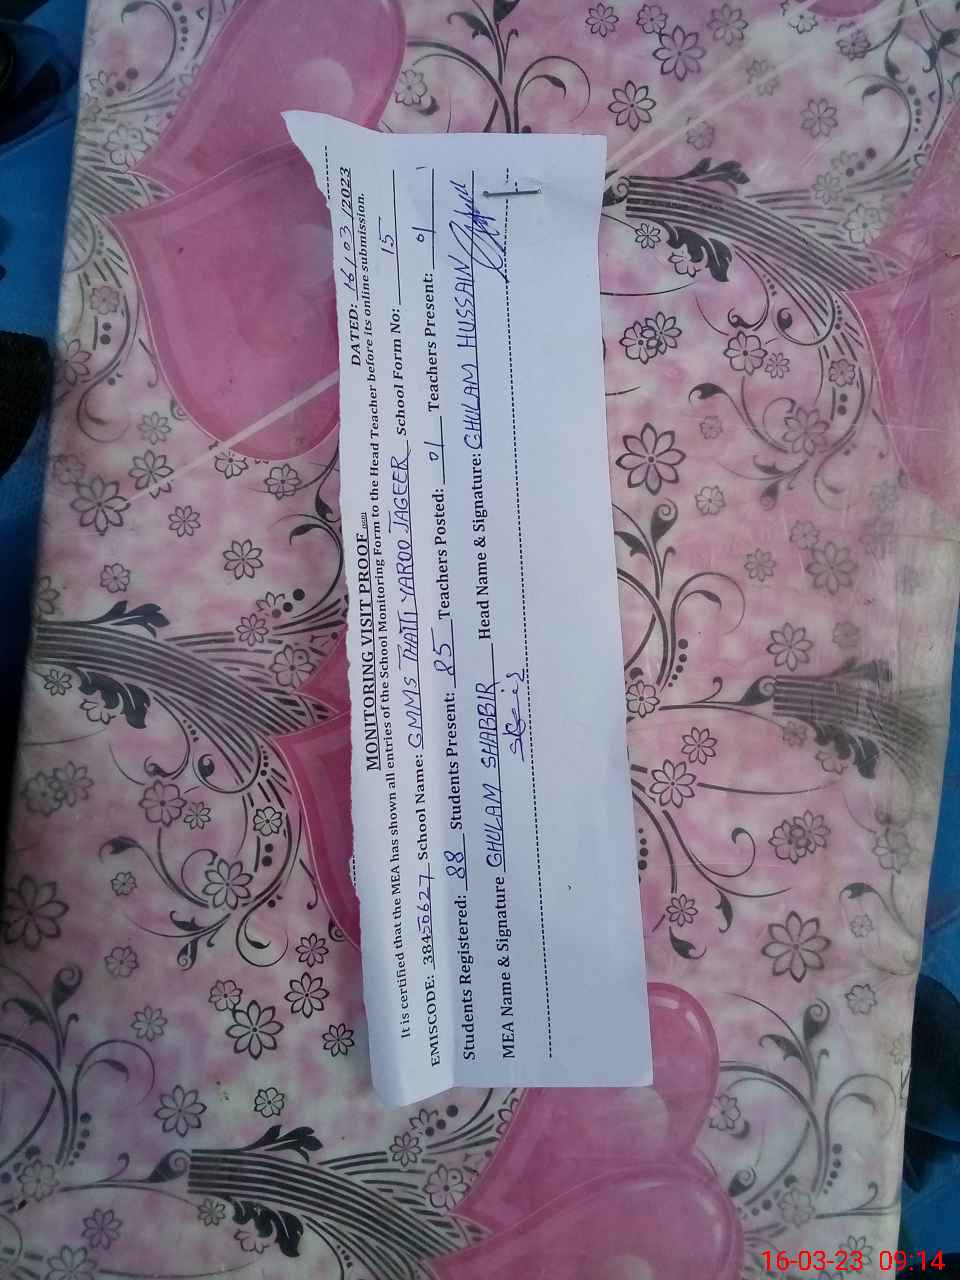 DATED: 16/03/2023
MONITORING VISIT PROOF
It is certified that the MEA has shown all entries of the School Monitoring Form to the Head Teacher before its online submission.
EMISCODE: 38456627 School Name: GMMS THATTI YAROO JAGEER School Form No: 15
Students Registered: 88 Students Present: 85 Teachers Posted: 01 Teachers Present: 01
MEA Name & Signature GHULAM SHABBIR Head Name & Signature: GHULAM HUSSAIN
16-03-23 09:14